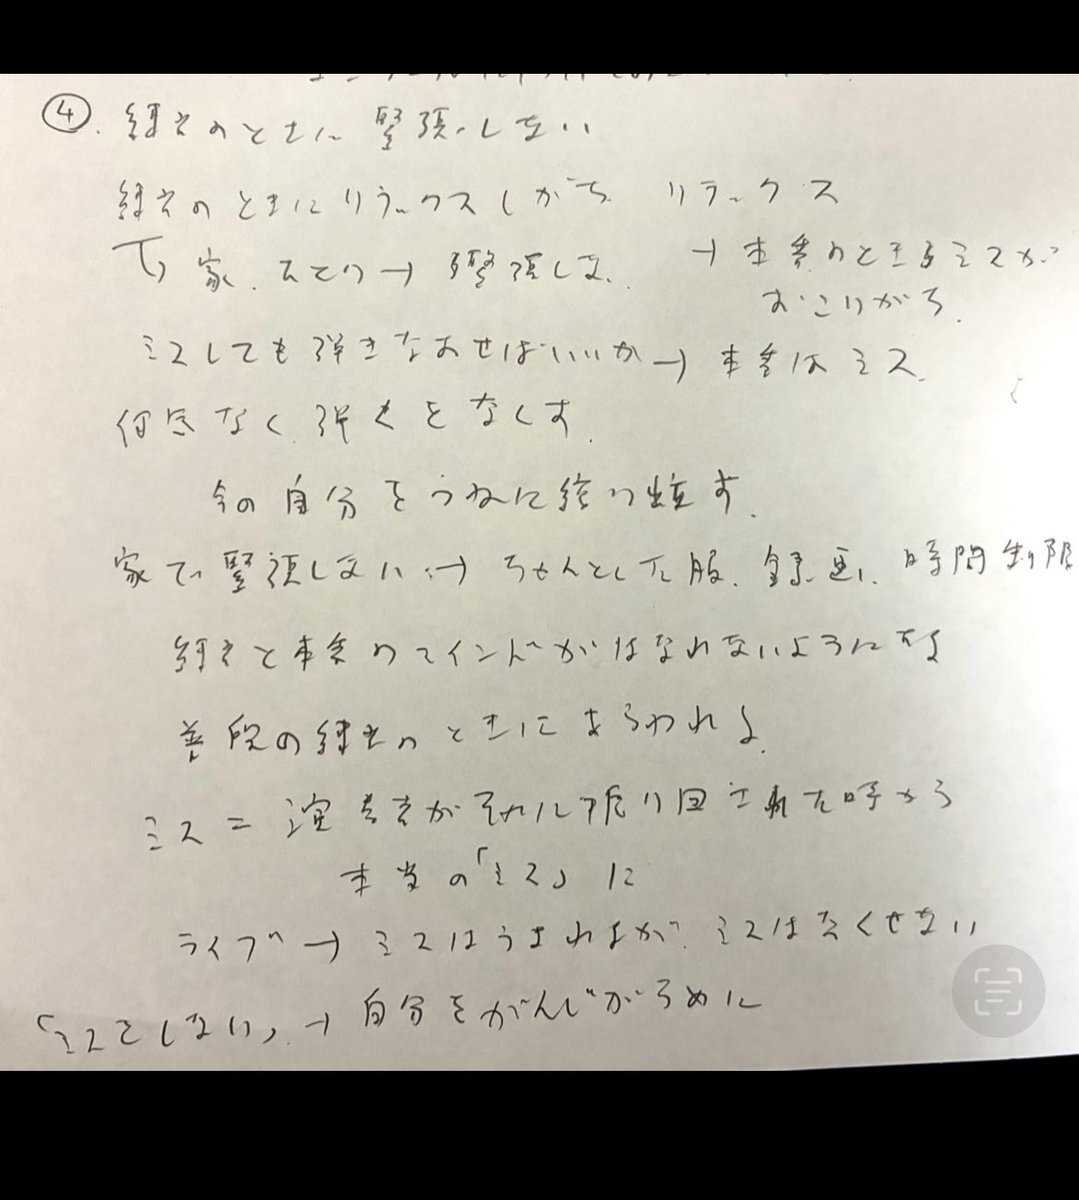 ④. 練習のときに緊張しない
練習のときにリラックスしがち リラックス
で、家、ひとり→緊張しな
→本番のときもミスが
おこりがち.
ミスしても弾きなおせばいいか→本番はミス.
何気なく弾くをなくす.
今の自分をつねに絞り出す.
家で緊張しない→ちゃんとした服、録画、時間制限
練習と本番のマインドがはなれないように
普段の練習のときにあらわれる.
ミス=演奏者がそれに振り回された時から
本当の「ミス」に
ライブ→ミスはうまれるが ミスはなくせない
「ミスをしない」→自分をがんじがらめに